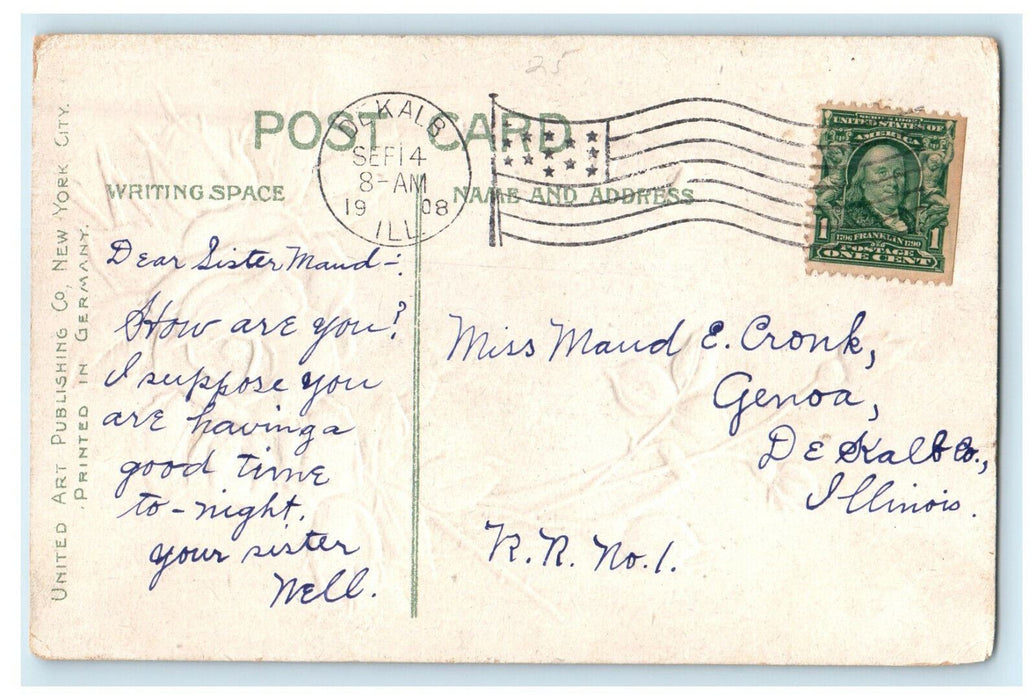 25
POST CARD
DEKALB
SEP 14
8-AM
19 08
ILL.
SERIES 1902
UNITED STATES OF
AMERICA
1 1706 FRANKLIN 1790 1
POSTAGE
ONE CENT
WRITING SPACE
NAME AND ADDRESS
UNITED ART PUBLISHING CO, NEW YORK CITY.
PRINTED IN GERMANY.
Dear Sister Maud-:
How are you?
I suppose you
are having a
good time
to-night.
your sister
Nell.
Miss Maud E. Cronk,
Genoa,
DeKalb Co.,
Illinois.
R.R. No. 1.